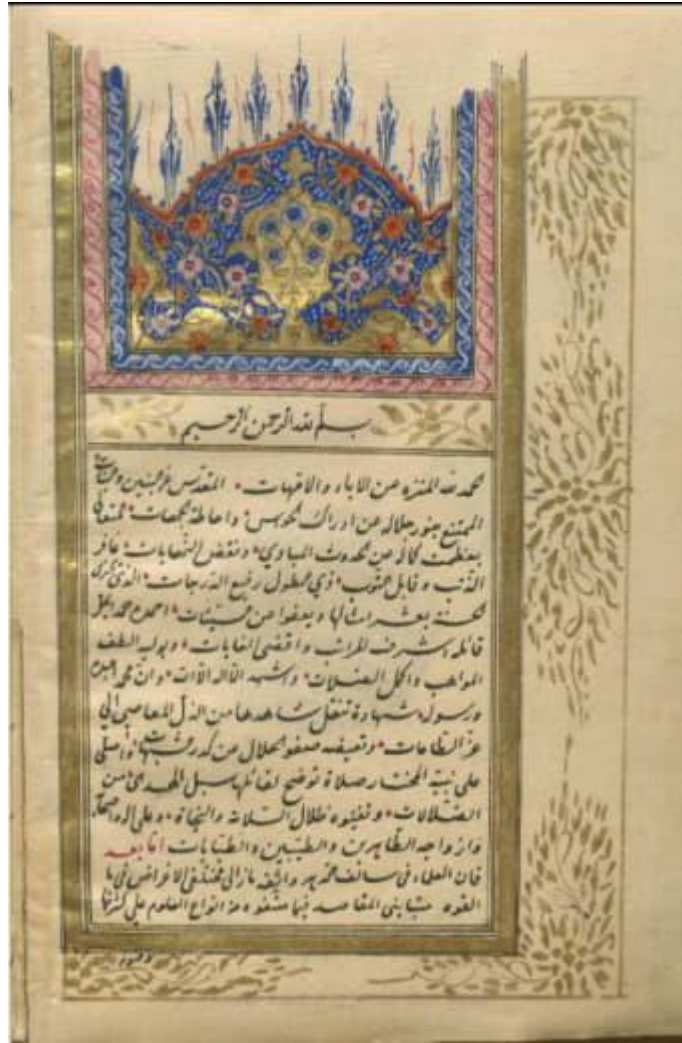 بسم الله الرحمن الرحيم
الحمد لله المنزه عن الاباء والامهات المقدس عن البنين والبنات
الممتنع بنور جلاله عن ادراك الحواس واحاطة الجهات
بعظمت كماله عن الحدوث المبادي ونقص النهايات غافر
الذنب وقابل التوب ذي الطول رفيع الدرجات الذي
الحسنة بعشر امثالها ويعفوا عن السيئات احمده حمدا
قائله اشرف المراتب واقصى الغايات ويوليه الطف
المواهب واكمل الصلات واشهد ان لا اله الا الله وان محمدا عبده
ورسوله شهادة تنقل شاهدها من الذل المعاصي الي
عز الطاعات صفو الحلال عن كدر واصلى
على نبيه المختار صلاة توضح لقائلها سبل الهدى من
الضلالات ظلال السلامة والنجاة وعلى اله واصحابه
وازواجه الطاهرين والطيبين والطيبات اما بعد
فان العلماء في سالف مختلفي الاغراض في
متبايني المقاصد فيما صنفوه من انواع العلوم على كثرتها